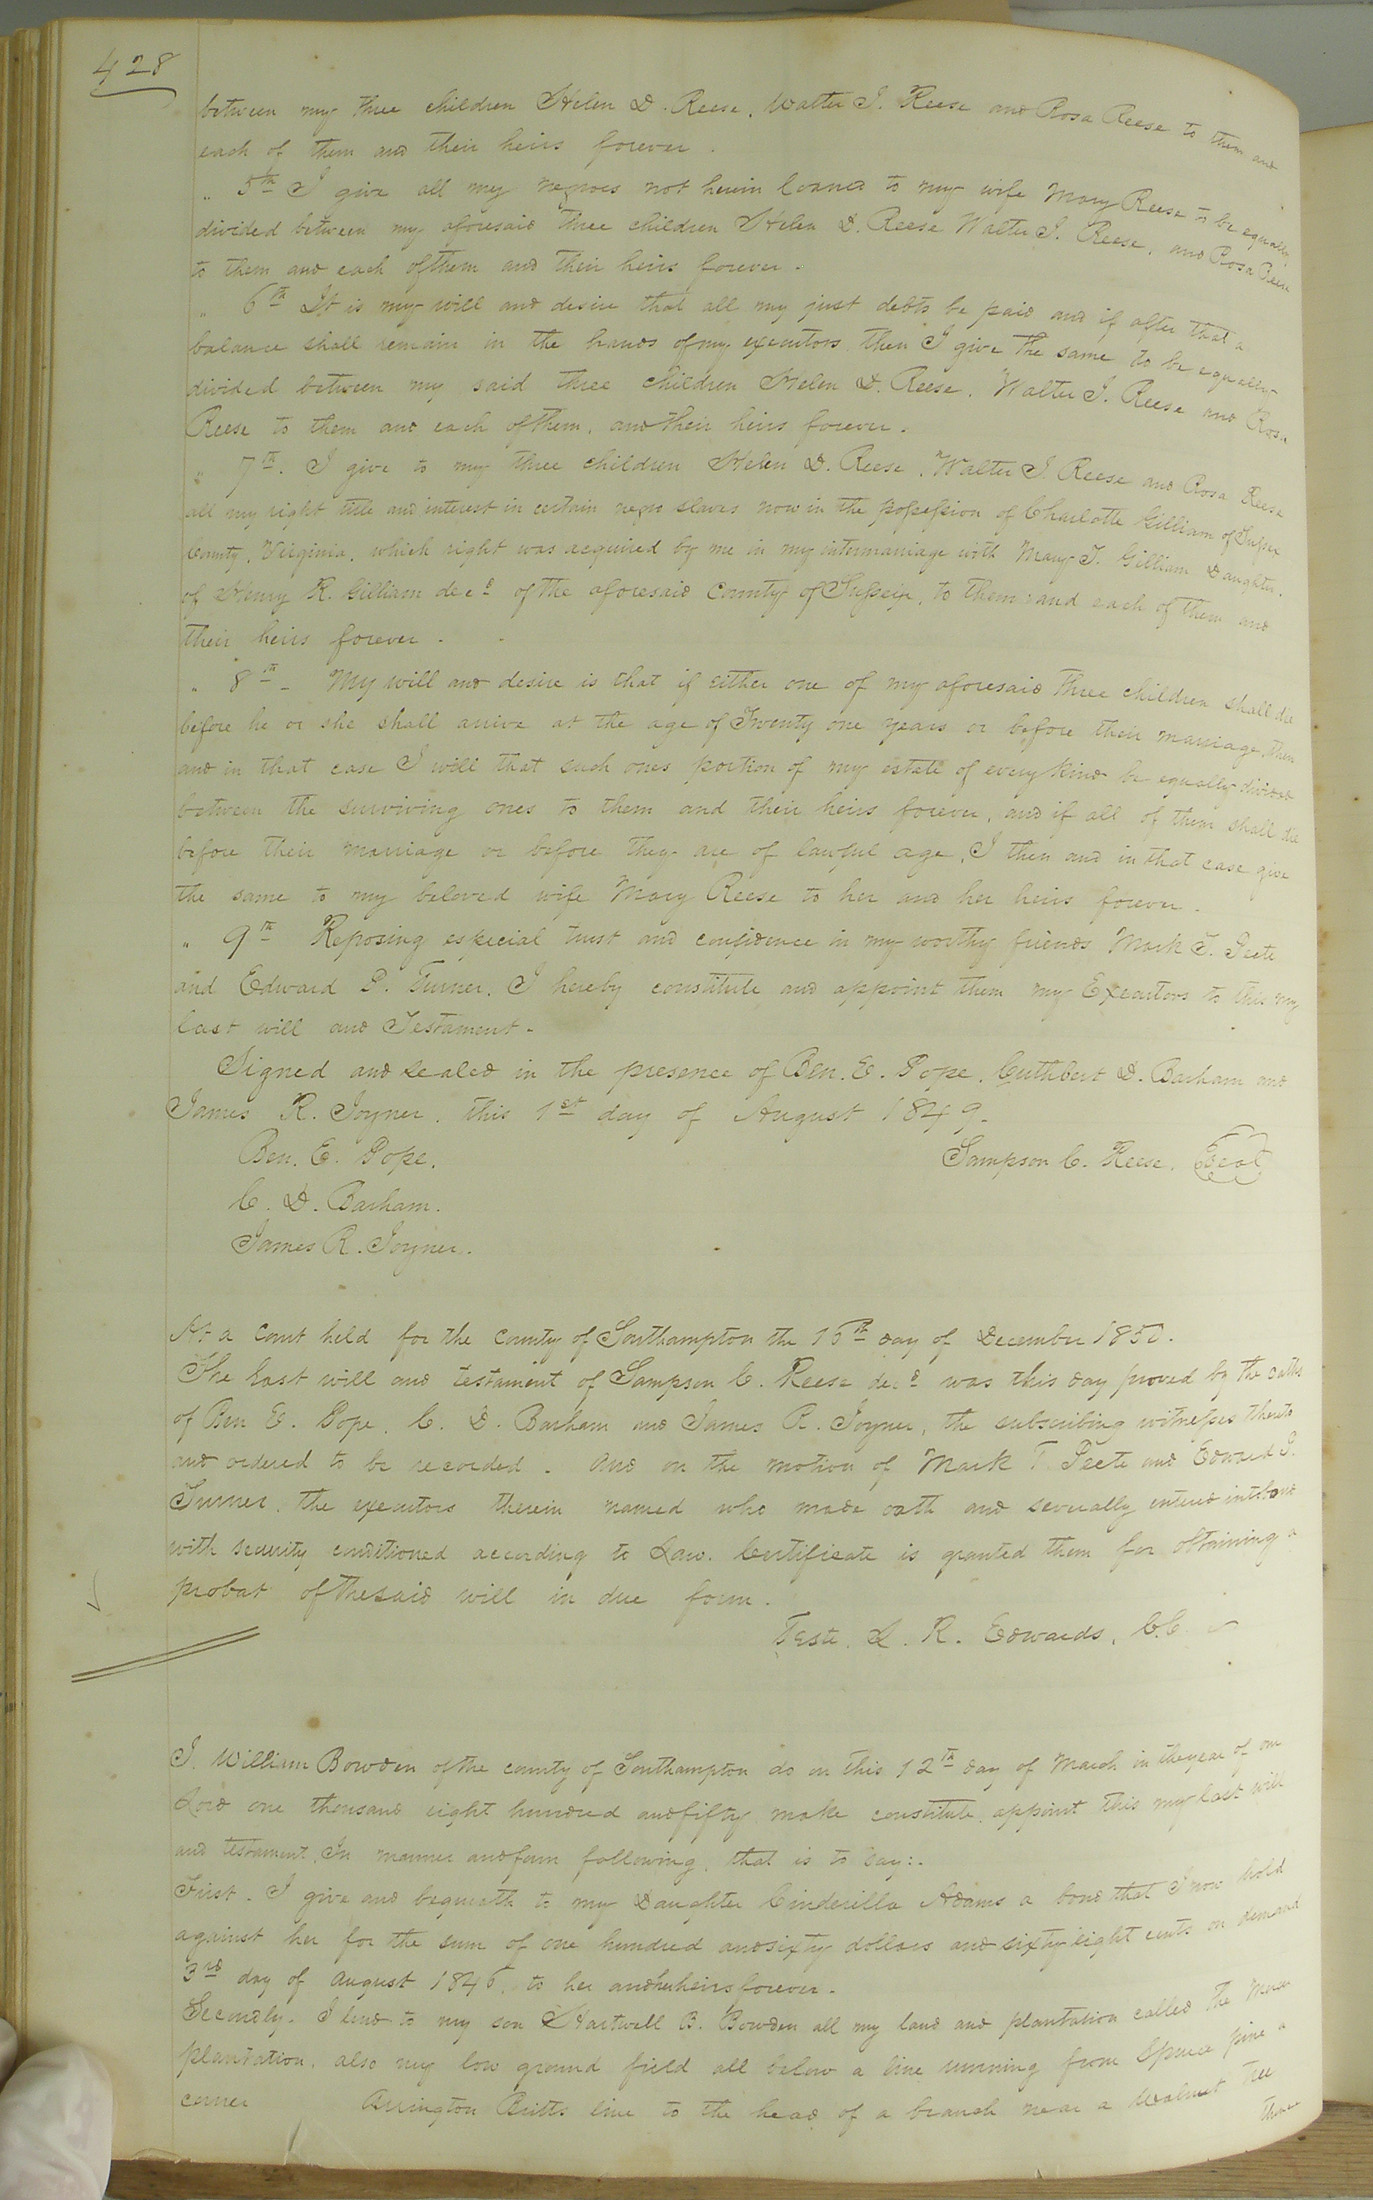 428
between my three children Helen D. Reese, Walter J. Reese and Rosa Reese to them and
each of them and their heirs forever.
" 5th I give all my negroes not herein loaned to my wife Mary Reese to be equally
divided between my aforesaid three children Helen D. Reese Walter J. Reese, and Rosa Reese
to them and each of them and their heirs forever.
" 6th It is my will and desire that all my just debts be paid and if after that a
balance shall remain in the hands of my executors then I give the same to be equally
divided between my said three children Helen D. Reese, Walter J. Reese and Rosa
Reese to them and each of them, and their heirs forever.
" 7th. I give to my three children Helen D. Reese, Walter J. Reese and Rosa Reese
all my right title and interest in certain negro slaves now in the possession of Charlotte Gilliam of Sussex
County, Virginia, which right was acquired by me in my intermarriage with Mary J. Gilliam Daughter
of Henry R. Gilliam decd of the aforesaid County of Sussex, to them and each of them and
their heirs forever.
" 8th - My will and desire is that if either one of my aforesaid three children shall die
before he or she shall arrive at the age of Twenty one years or before their marriage, then
and in that case I will that such ones portion of my estate of every kind be equally divided
between the surviving ones to them and their heirs forever, and if all of them shall die
before their marriage or before they are of lawful age, I then and in that case give
the same to my beloved wife Mary Reese to her and her heirs forever.
" 9th Reposing especial trust and confidence in my worthy friends Mark T. Peete
and Edward P. Turner, I hereby constitute and appoint them my Executors to this my
last will and Testament.
Signed and sealed in the presence of Ben. E. Pope, Cuthbert D. Barham and
James R. Joyner, this 1st day of August 1849.
Ben. E. Pope. Sampson C. Reese. Seal
C. D. Barham.
James R. Joyner.
At a Court held for the county of Southampton the 16th day of December 1850.
The last will and testament of Sampson C. Reese decd was this day proved by the oaths
of Ben E. Pope, C. D. Barham and James R. Joyner, the subscribing witnesses thereto
and ordered to be recorded. And on the motion of Mark T. Peete and Edward P.
Turner, the executors therein named who made oath and severally entered into bond
with security conditioned according to Law. Certificate is granted them for obtaining a
probat of the said will in due form.
Teste. L. R. Edwards, C.C.
I William Bowden of the county of Southampton do on this 12th day of March in the year of our
Lord one thousand eight hundred and fifty make constitute, appoint this my last will
and testament, In manner and form following, that is to say:.
First. I give and bequeath to my Daughter Cinderilla Adams a bond that I now hold
against her for the sum of one hundred and sixty dollars and sixty eight cents on demand
3rd day of August 1846, to her and her heirs forever.
Secondly. I lend to my son Hartwell B. Bowden all my land and plantation called the
plantation, also my low ground field all below a line running from Spruce pine a
corner Arrington Britts line to the head of a branch near a Walnut tree
thence